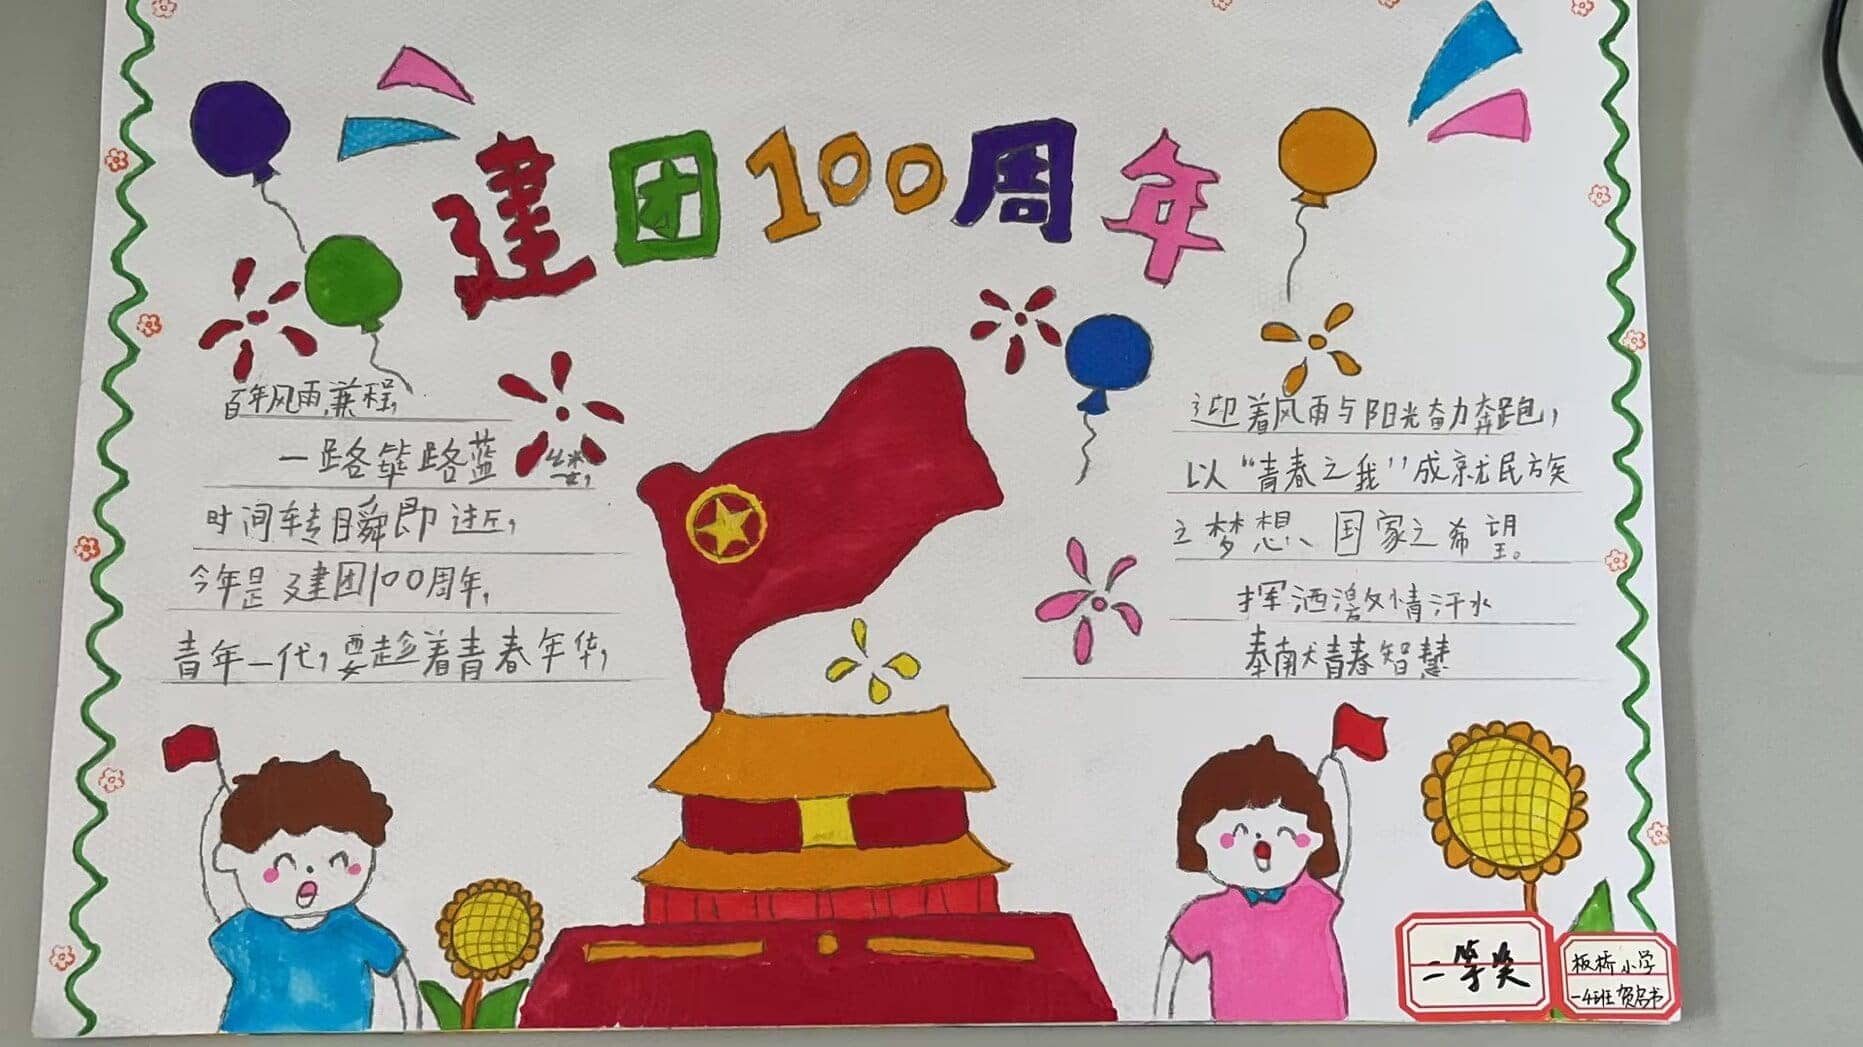 建团100周年
百年风雨兼程,
一路筚路蓝缕,
时间转瞬即逝,
今年是建团100周年,
青年一代,要趁着青春年华,
迎着风雨与阳光奋力奔跑,
以“青春之我”成就民族
之梦想、国家之希望。
挥洒激情汗水
奉献青春智慧
二等奖
板桥小学
一4班